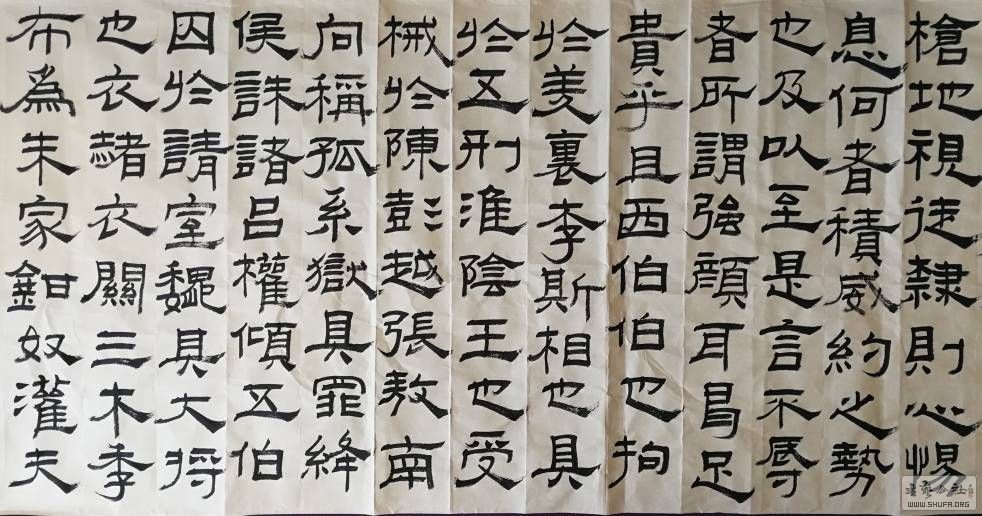 槍地視徒隸則心惕
息何者積威約之勢
也及以至是言不辱
者所謂強顏耳曷足
貴乎且西伯伯也拘
於羑裏李斯相也具
於五刑淮陰王也受
械於陳彭越張敖南
向稱孤系獄具罪絳
侯誅諸呂權傾五伯
囚於請室魏其大將
也衣赭衣關三木季
布爲朱家鉗奴灌夫
WWW.SHUFA.ORG